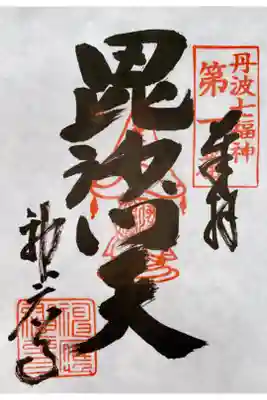 丹波七福神
第一
奉拝
毘沙門天
神蔵寺